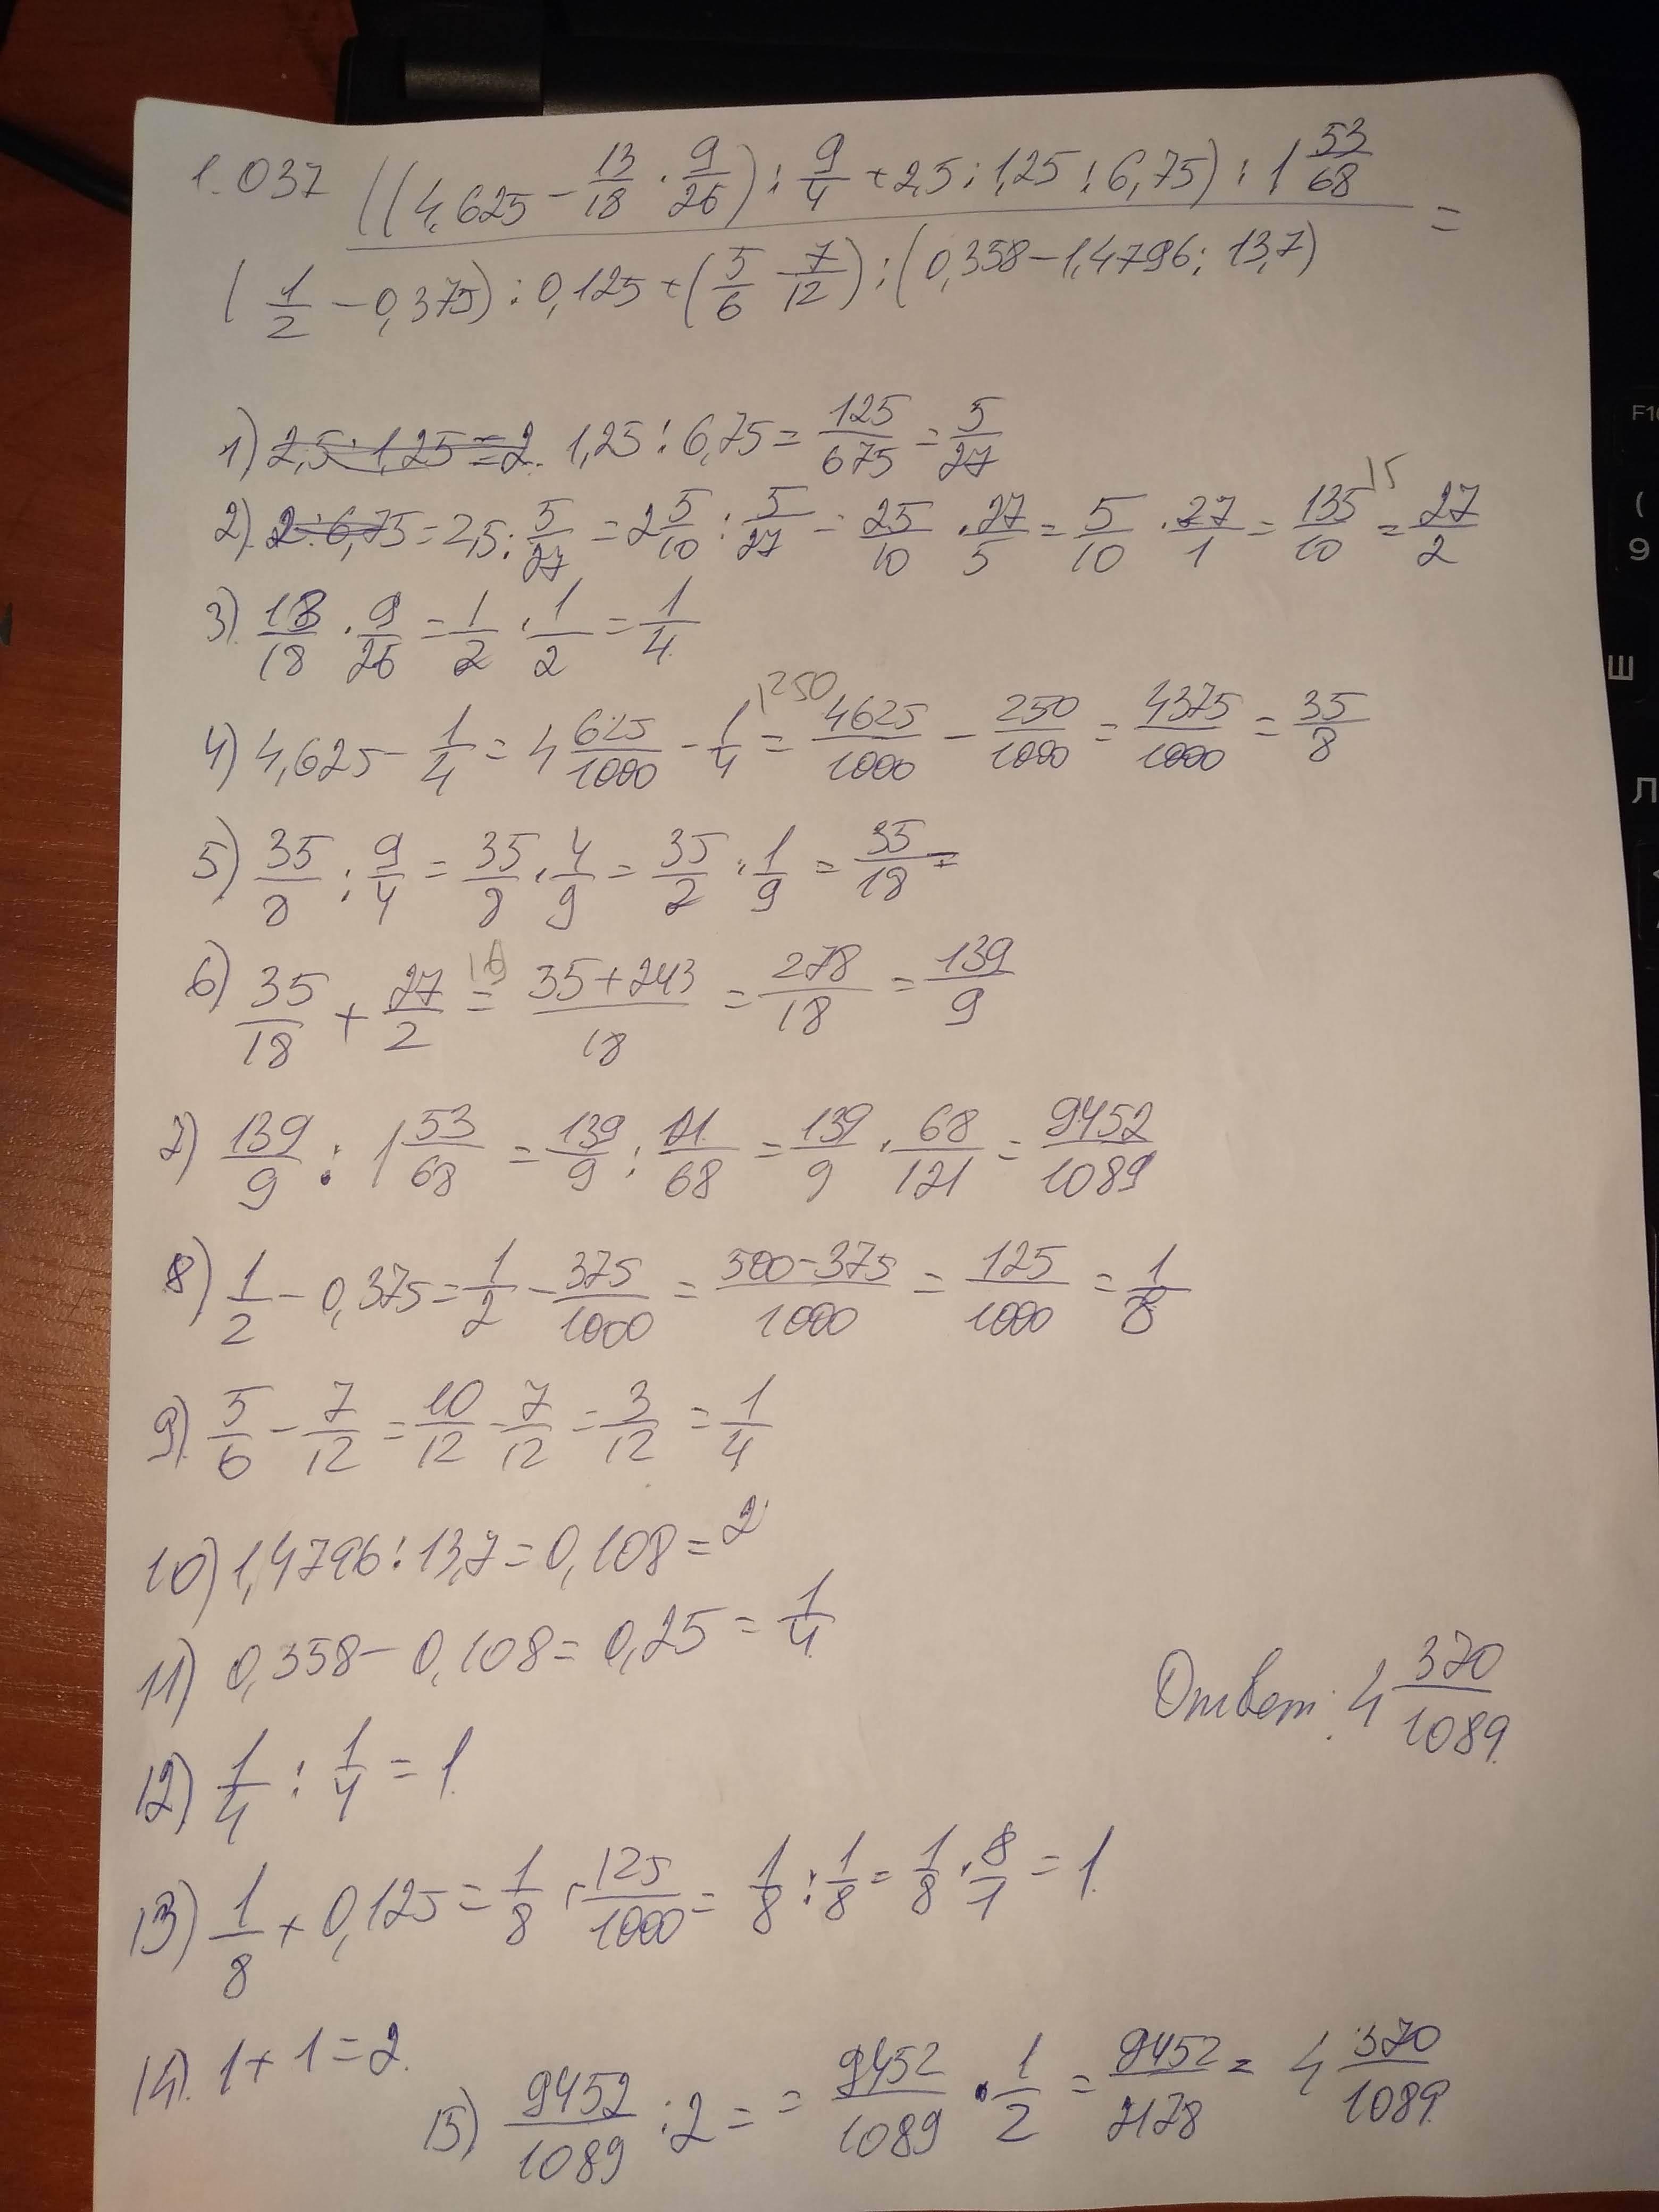 1.037 ((4,625 - 13/18 · 9/26) : 9/4 + 2,5 : 1,25 : 6,75) : 1 53/68 =
(1/2 - 0,375) : 0,125 + (5/6 - 7/12) : (0,358 - 1,4796 : 13,7)
1) 2,5 : 1,25 = 2. 1,25 : 6,75 = 125/675 = 5/27
2) 2 : 6,75 = 2,5 : 5/27 = 2 5/10 : 5/27 = 25/10 · 27/5 = 5/10 · 27/1 = 135/10 = 27/2
3) 13/18 · 9/26 = 1/2 · 1/2 = 1/4
4) 4,625 - 1/4 = 4 625/1000 - 1/4 = 4625/1000 - 250/1000 = 4375/1000 = 35/8
5) 35/8 : 9/4 = 35/8 · 4/9 = 35/2 · 1/9 = 35/18 =
6) 35/18 + 27/2 = 35+243/18 = 278/18 = 139/9
7) 139/9 : 1 53/68 = 139/9 : 121/68 = 139/9 · 68/121 = 9452/1089
8) 1/2 - 0,375 = 1/2 - 375/1000 = 500-375/1000 = 125/1000 = 1/8
9) 5/6 - 7/12 = 10/12 - 7/12 = 3/12 = 1/4
10) 1,4796 : 13,7 = 0,108 = 2
11) 0,358 - 0,108 = 0,25 = 1/4
Ответ: 4 370/1089
12) 1/4 : 1/4 = 1.
13) 1/8 + 0,125 = 1/8 · 125/1000 = 1/8 : 1/8 = 1/8 · 8/1 = 1.
14). 1 + 1 = 2.
15) 9452/1089 : 2 = = 9452/1089 · 1/2 = 9452/2178 = 4 370/1089
F10
(
9
Ш
Л